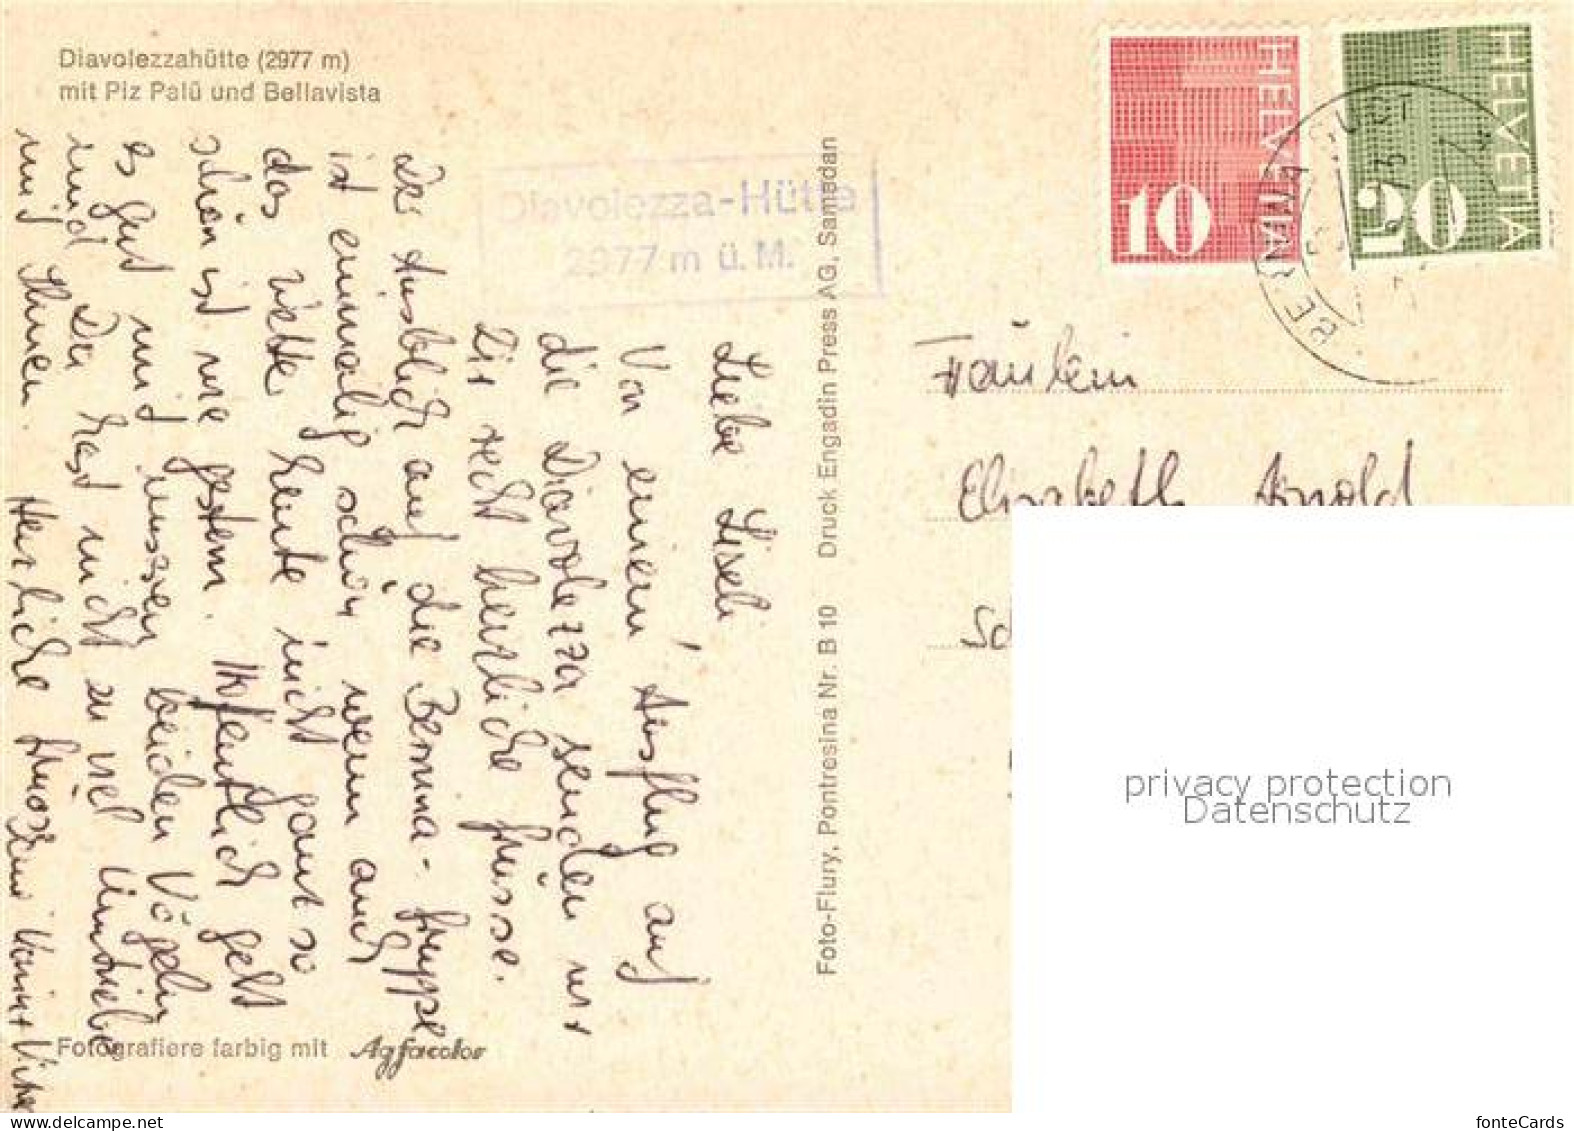 Diavolezzahütte (2977 m)
mit Piz Palü und Bellavista
Diavolezza-Hütte
2977 m ü. M.
HELVETIA
10
HELVETIA
20
Liebe Liseli
Von einem Ausflug auf
die Diavolezza senden wir
Dir recht herzliche Grüsse.
Der Ausblick auf die Bernina-Gruppe
ist einmalig schön wenn auch
das Wetter heute nicht ganz so
schön ist wie gestern. Hoffentlich geht
es gut mit unseren beiden Vögelin
und Du hast nicht zu viel Umtriebe
mit Ihnen. Herzliche Grüsse
Foto-Flury, Pontresina Nr. B 10 Druck Engadin Press AG, Samedan
Fräulein
Elisabeth Arnold
Fotografiere farbig mit Agfacolor
privacy protection
Datenschutz
www.delcampe.net
fonteCards